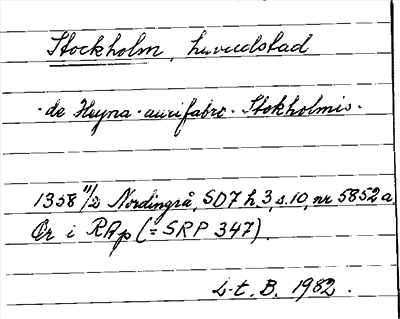 Stockholm, huvudstad
- de Heyna - aurifabro - Stokholmis -
1358 11/2 Nordingrå, SD7 h. 3, s. 10, nr 5852 a.
Or i RAp (= SRP 347).
L-t. B. 1982.